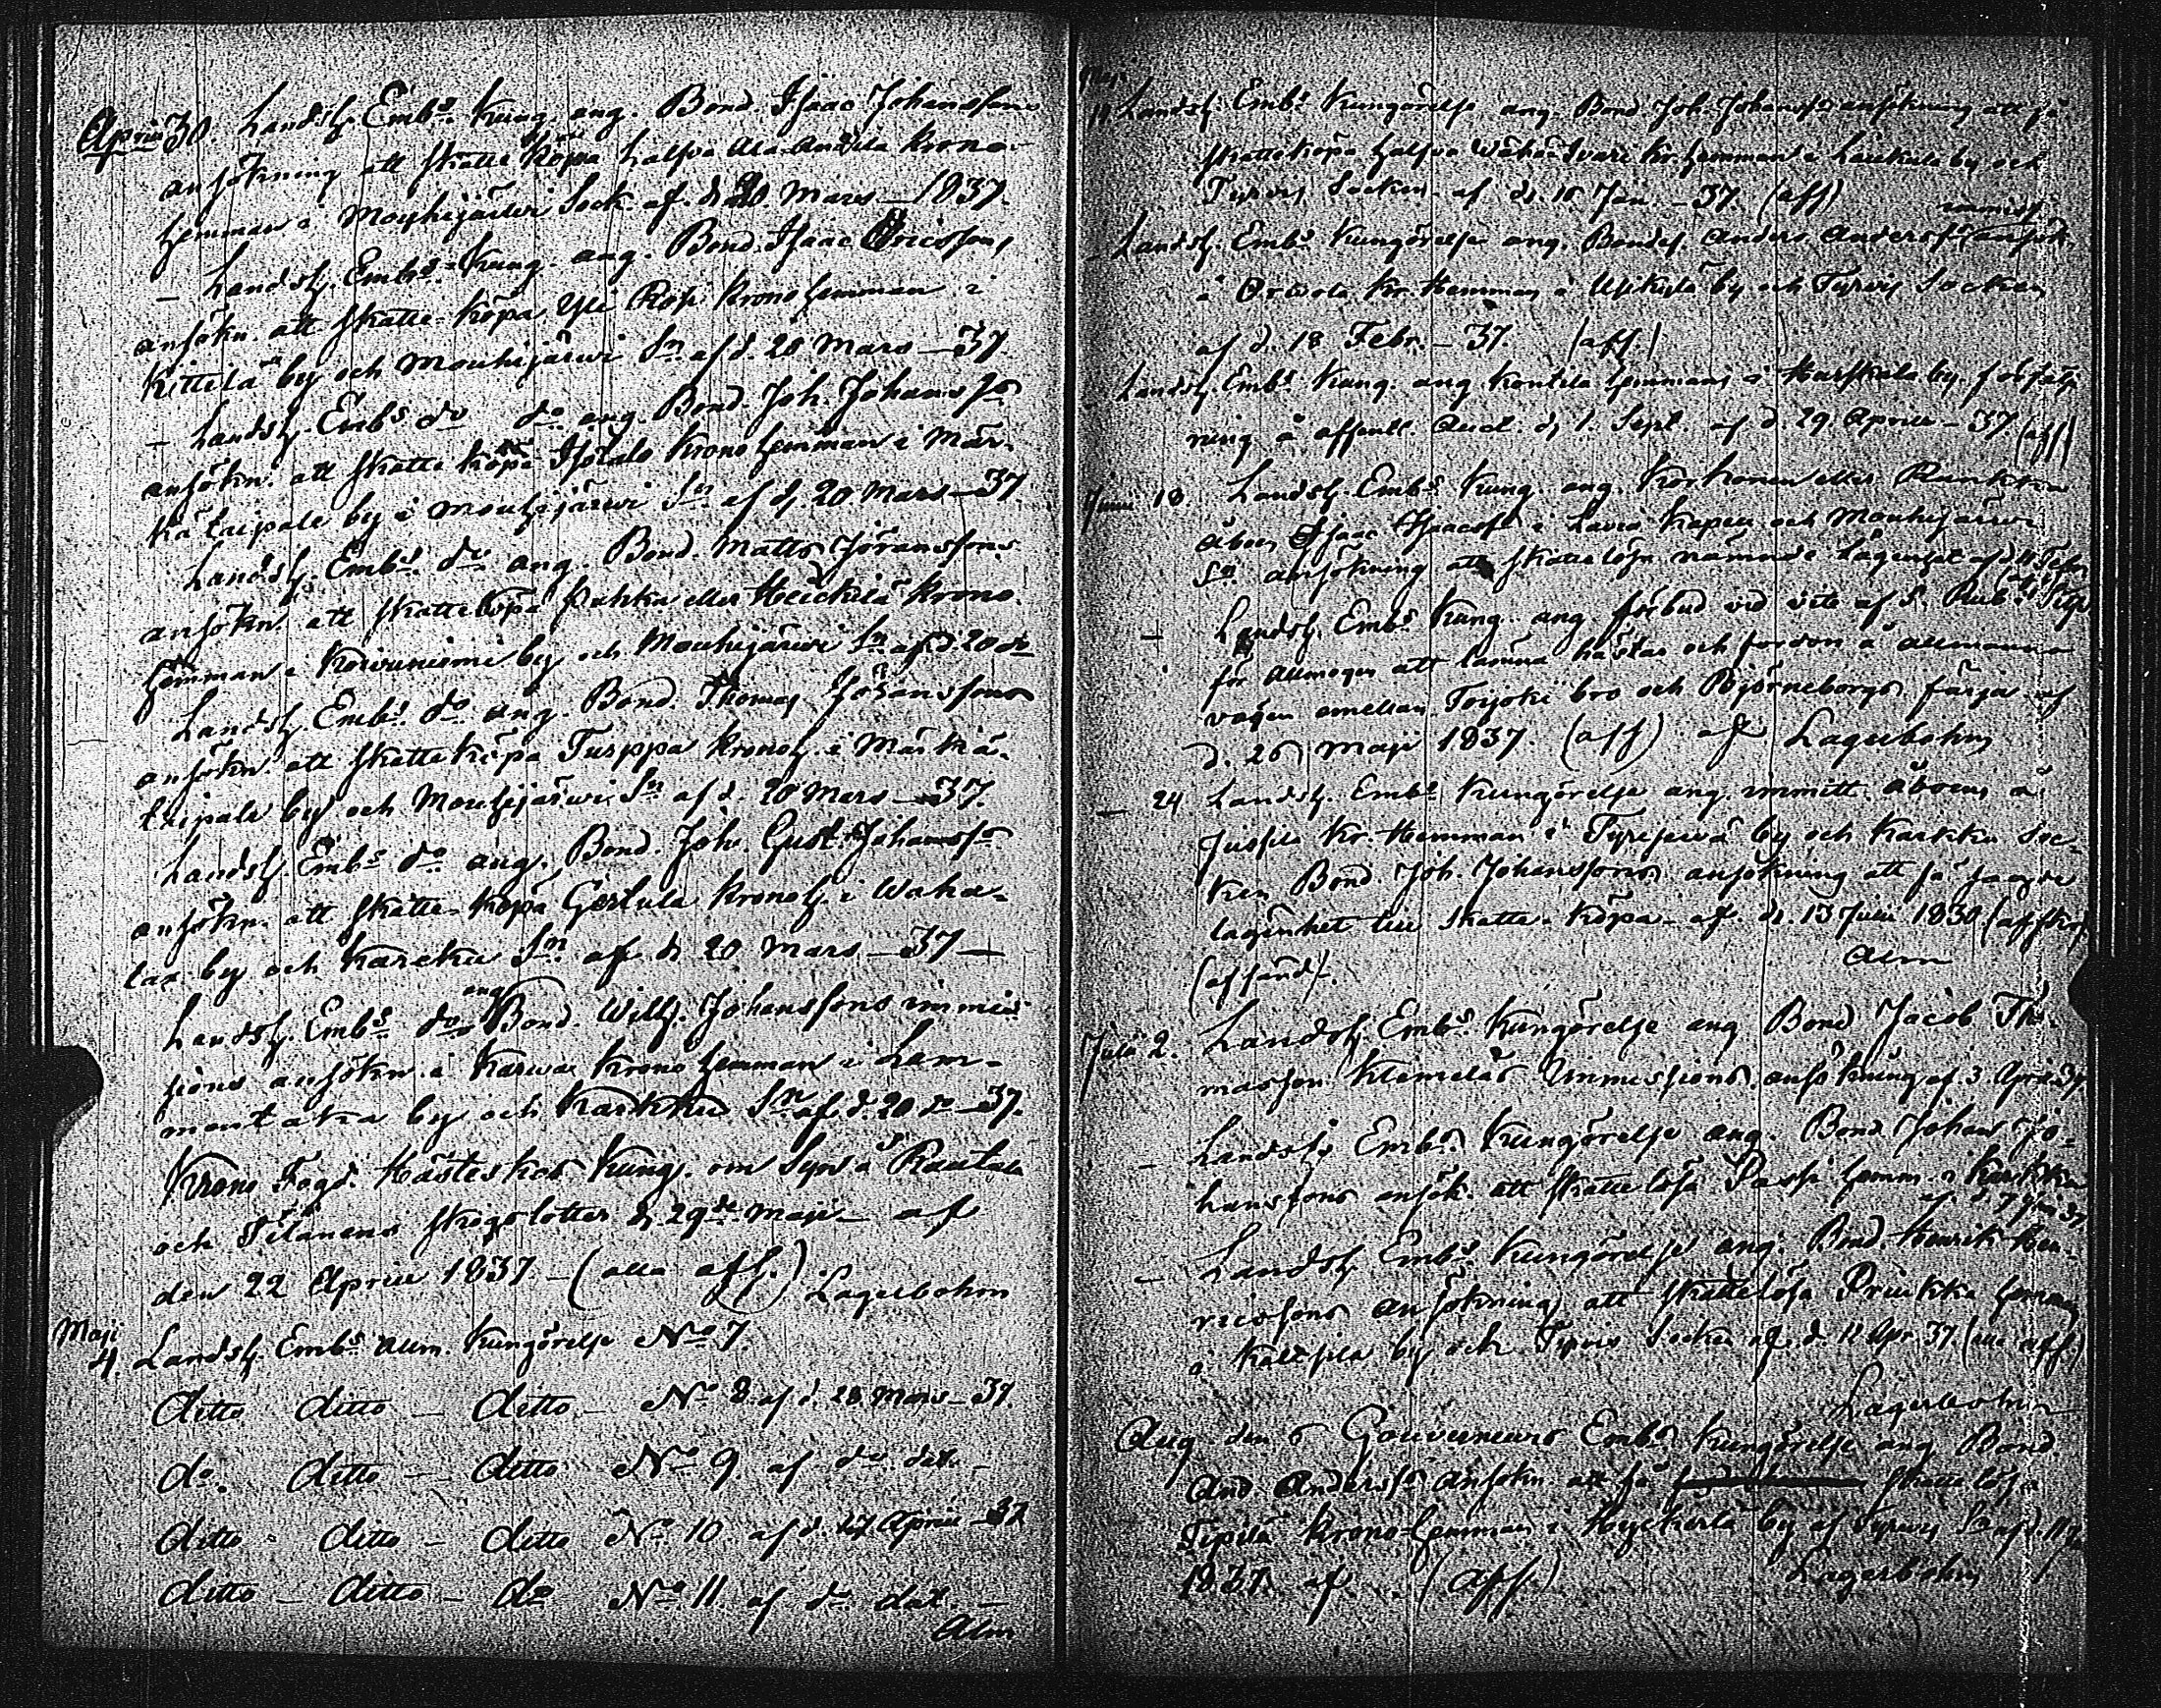 April 30. Landsh. Embs. Kung. ang. Bond. Isaac Johanssons
ansökning att skatte köpa halfva Ala Anttila krono
hemman i Mouhijärwi Sock. af d. 20 Mars – 1837.
– Landsh. Embs. Kung. ang. Bond. Isaac Ericssons
ansökn. att skatte-köpa Yli Röpi Kronohemman i
Kittilä by och Mouhijärwi Sn af d. 20 Mars – 37
– Landsh. Embs do do ang. Bond. Joh. Johanss
ansökn. att skatte köpa Isotalo Kronohemman i Mär-
kätaipale by i Mouhijärwi Sn af d. 20 Mars – 37
Landsh. Embs. do ang. Bond. Matts Jöranssons
ansökn. att skatteköpa eller Heickilä Krono
hemman i Koivuniemi by och Mouhijärwi Sn af d. 20 do
Landsh. Embs. do ang. Bond. Thomas Johanssons
ansökn. att skatteköpa Turppa Kronoh. i Märkä-
taipale by och Mouhijärwi Sn af d. 20 Mars – 37.
Landsh. Embs do ang. Bond. Joh. Gust. Johanss
ansökn. att skatte-köpa Gertula Kronoh. i Waha-
lax by och Karcku Sn af d. 20 Mars – 37 –
Landsh. Embs. do ang Bond. Willh. Johanssons immis
sions ansökn. i Karwa Krono hemman i Lam-
mentaka by och Karkku Sn af d. 20 do – 37.
Krono Fogd. Hästeskos Kung. om Syn å Rautala
och skogslotter d. 29de Maji – af
den 22 April 1837 – (alla aff.) Lagerbohm
Maji
4. Landsh. Embs allm. Kungörelse No 7.
ditto ditto – ditto – No 8 af d. 28 Mars – 37.
do. ditto – ditto No 9 af do dat. –
ditto – ditto – ditto No 10 af d. 17 April – 37
ditto – ditto – do No 11 af do dat. –
Alm
Maji
Landsh. Embs Kungörelse ang. Bond. Joh. Johanss ansökning att få
skatteköpa halfva Wähä Kr. hemman i by och
Tyrvis Socken af d. 16 Jan. – 37. (aff)
immiss
– Landsh. Embs Kungörelse ang. Bondes. Anders Anderss ansök
å Kr. Hemman i by och Tyrvis Socken
af d. 18 Febr. – 37. (aff.)
Landsh. Embs Kung. ang. Kontila hemmans i by försälj
ning å offentl. Auct. d. 1 Sept. af d. 29 April – 37 (aff)
Junii 18. Landsh. Embs Kung. ang. Korhonen eller
åboen Isaac Isaacss i Lavia Kapell och Mouhijärwi
Sn ansökning att skattelösa nämnde Lägenhet af d. 11 Febr
(aff)
– Landsh. Embs Kung. ang. förbud vid vite af 5 Rub. Silfv.
för Allmogen att lämna hästar och fordon å allmänna
vägen emellan Torjoki bro och Björneborgs färja af
d. 26 Maji 1837. (aff) af Lagerbohm
– 24 Landsh. Embs Kungörelse ang. immitt. åboens å
Jussila Kr. Hemman i by och Karkku Soc-
ken Bond Joh. Johanssons ansökning att få sagde
lägenhet till skatte-köpa af d. 13 Julii 1830 (afskr.
(afsänd/. Alm
Julii 2. Landsh. Embs Kungörelse ang Bond Jacob Tho-
masson Klemeläs Immissions ansökning af 3 Apr. 37
– Landsh. Embs Kungörelse ang. Bond Johan Jo-
hanssons ansök. att skattelösa Passi hemm. i Karkku
af d. 7 Juni 37
– Landsh. Embs Kungörelse ang. Bond. Henrik Hen-
ricssons ansökning att skattelösa Pruikka heman
i Kaltsila by och Tyrvis Socken af d. 11 Apr. 37. (alla aff)
Lagerbohm
Aug. den 6 Gouverneurs Embs Kungörelse ang Bond
And. Anderss ansökn. att få skattelösa
Tipilä Krono-hemman i by af Tyrvis Sn af d. 11
1837 af (aff.) Lagerbohm